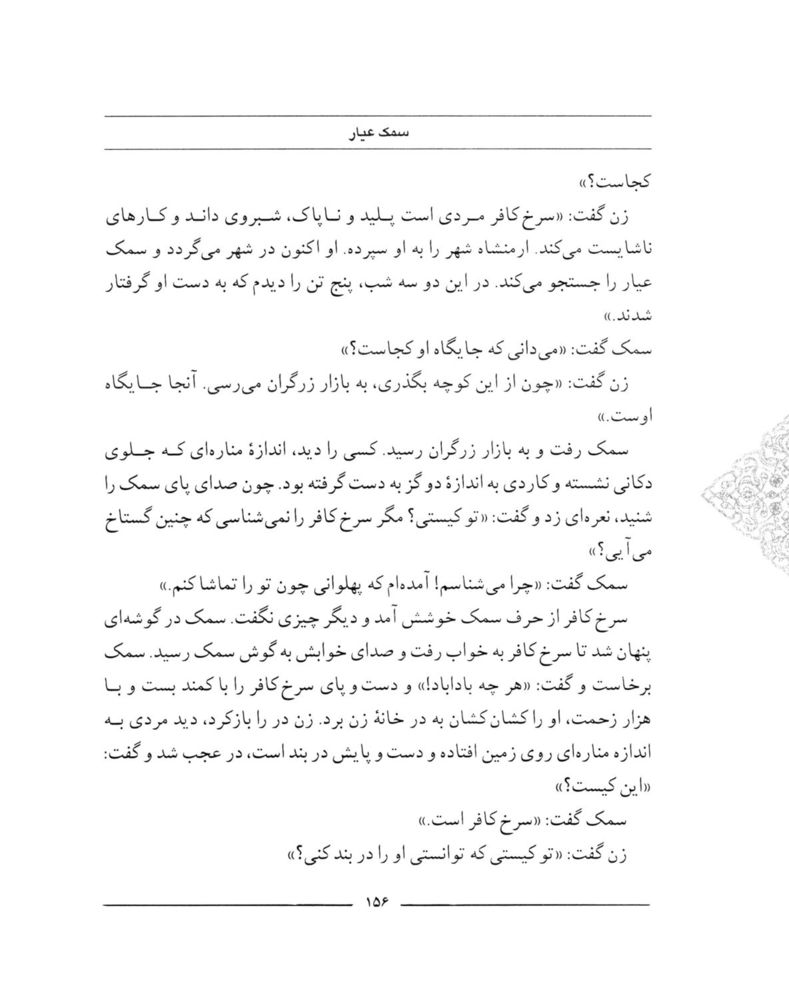 سمک عیار
کجاست؟»
زن گفت: «سرخ کافر مردی است پلید و ناپاک، شبروی داند و کارهای
ناشایست می‌کند. ارمنشاه شهر را به او سپرده. او اکنون در شهر می‌گردد و سمک
عیار را جستجو می‌کند. در این دو سه شب، پنج تن را دیدم که به دست او گرفتار
شدند.»
سمک گفت: «می‌دانی که جایگاه او کجاست؟»
زن گفت: «چون از این کوچه بگذری، به بازار زرگران می‌رسی. آنجا جایگاه
اوست.»
سمک رفت و به بازار زرگران رسید. کسی را دید، اندازهٔ مناره‌ای که جلوی
دکانی نشسته و کاردی به اندازهٔ دو گز به دست گرفته بود. چون صدای پای سمک را
شنید، نعره‌ای زد و گفت: «تو کیستی؟ مگر سرخ کافر را نمی‌شناسی که چنین گستاخ
می‌آیی؟»
سمک گفت: «چرا می‌شناسم! آمده‌ام که پهلوانی چون تو را تماشا کنم.»
سرخ کافر از حرف سمک خوشش آمد و دیگر چیزی نگفت. سمک در گوشه‌ای
پنهان شد تا سرخ کافر به خواب رفت و صدای خوابش به گوش سمک رسید. سمک
برخاست و گفت: «هر چه باداباد!» و دست و پای سرخ کافر را با کمند بست و با
هزار زحمت، او را کشان کشان به در خانهٔ زن برد. زن در را بازکرد، دید مردی به
اندازه مناره‌ای روی زمین افتاده و دست و پایش در بند است، در عجب شد و گفت:
«این کیست؟»
سمک گفت: «سرخ کافر است.»
زن گفت: «تو کیستی که توانستی او را در بند کنی؟»
۱۵۶